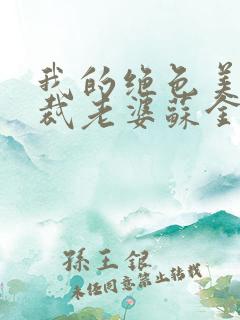 我的绝色美
裁老婆蘇全
孫王银
未经同意禁止转载